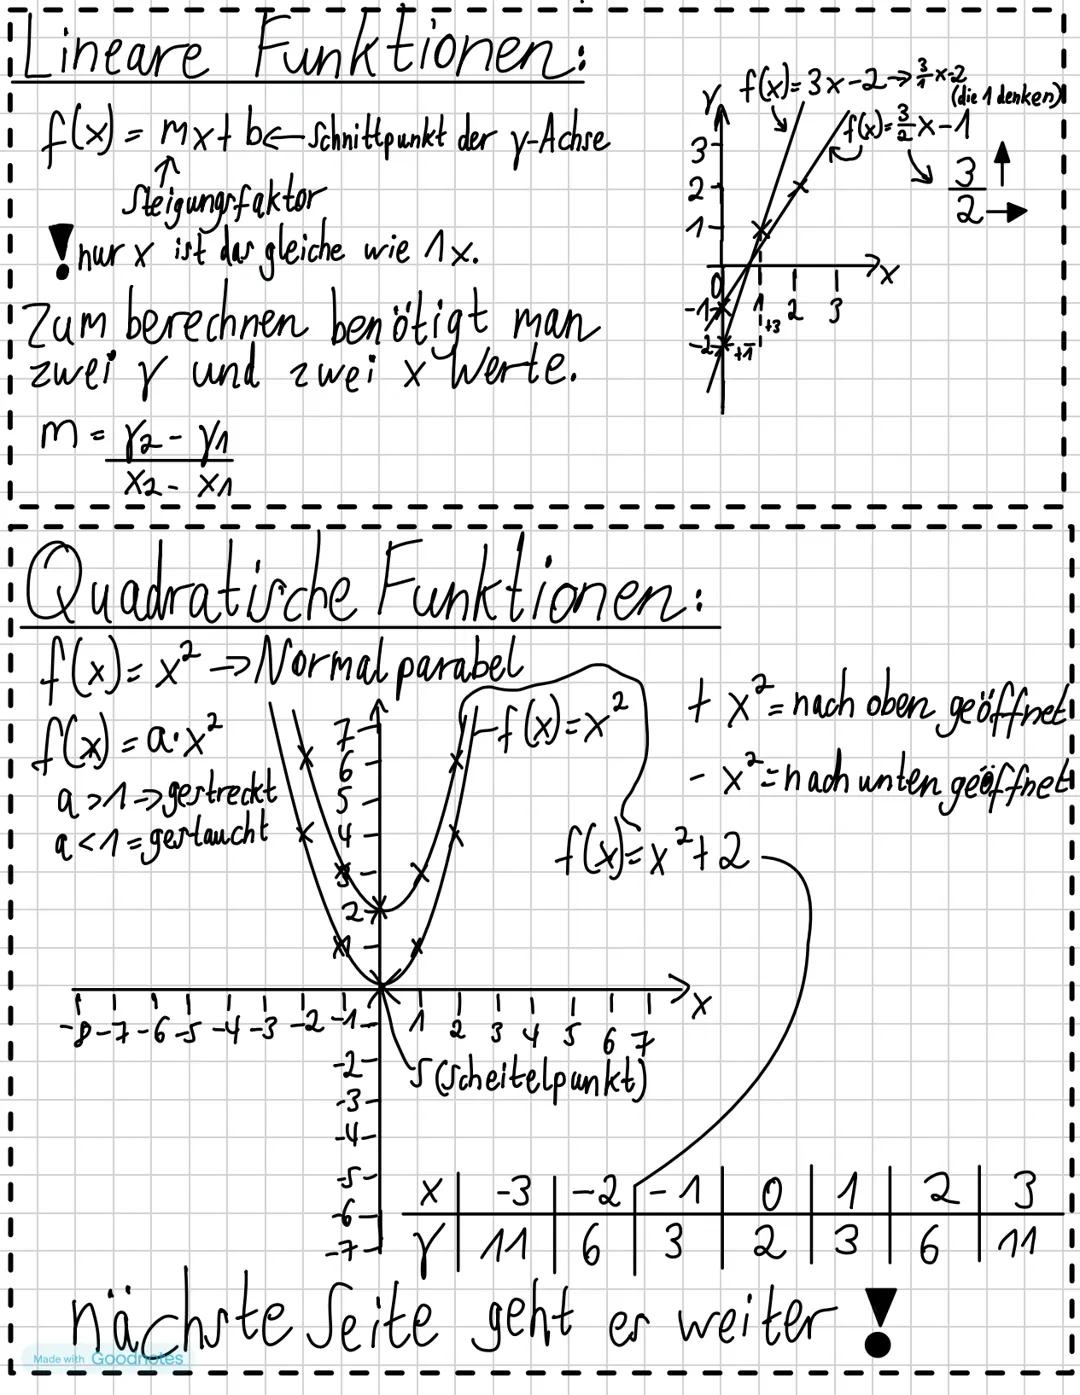 Lineare Funktionen:
f(x) = mx + b ← Schnittpunkt der y-Achse
↑
Steigungsfaktor
! nur x ist das gleiche wie 1x.
Zum berechnen benötigt man
zwei y und zwei x Werte.
m = y2 - y1
x2 - x1
f(x) = 3x - 2 → 3/1 x - 2
(die 1 denken)
f(x) = 3/2 x - 1
3 ↑
2 →
y
3
2
1
0 1 2 3 x
-1
-2
+3
+1
Quadratische Funktionen:
f(x) = x² → Normalparabel
f(x) = a·x²
a > 1 → gestreckt
a < 1 = gestaucht
f(x) = x²
+ x² = nach oben geöffnet
- x² = nach unten geöffnet
f(x) = x² + 2
7
6
5
4
3
2
-8 -7 -6 -5 -4 -3 -2 -1 1 2 3 4 5 6 7 x
S (Scheitelpunkt)
-2
-3
-4
-5
-6
-7
x | -3 | -2 | -1 | 0 | 1 | 2 | 3
y | 11 | 6 | 3 | 2 | 3 | 6 | 11
nächste Seite geht es weiter !
Made with Goodnotes